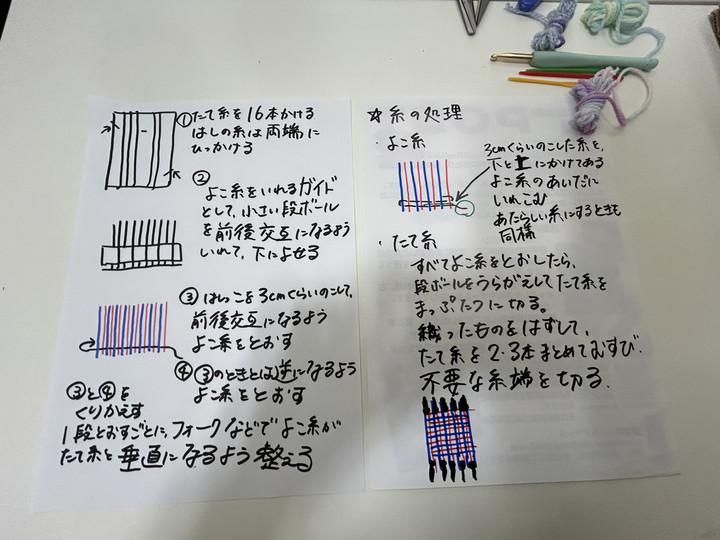 ①たて糸を16本かける
はしの糸は両端に
ひっかける
②
よこ糸をいれるガイド
として、小さい段ボール
を前後交互になるよう
いれて、下によせる
③はしっこを3cmくらいのこして、
前後交互になるよう
よこ糸をとおす
④③のときとは逆になるよう
よこ糸をとおす
③と④を
くりかえす
1段とおすごとに、フォークなどでよこ糸が
たて糸と垂直になるよう整える
☆糸の処理
・よこ糸
3cmくらいのこした糸を、
下と上にかけてある
よこ糸のあいだに
いれこむ
あたらしい糸にするときも
同様
・たて糸
すべてよこ糸をとおしたら、
段ボールをうらがえしてたて糸を
まっぷたつに切る。
織ったものをはずして、
たて糸を2・3本まとめてむすび、
不要な糸端を切る.